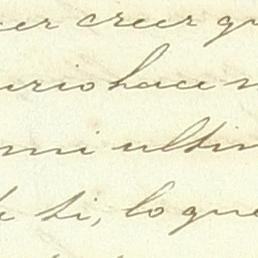 cer creer qu
urio hace n
mi ultim
de ti, lo que